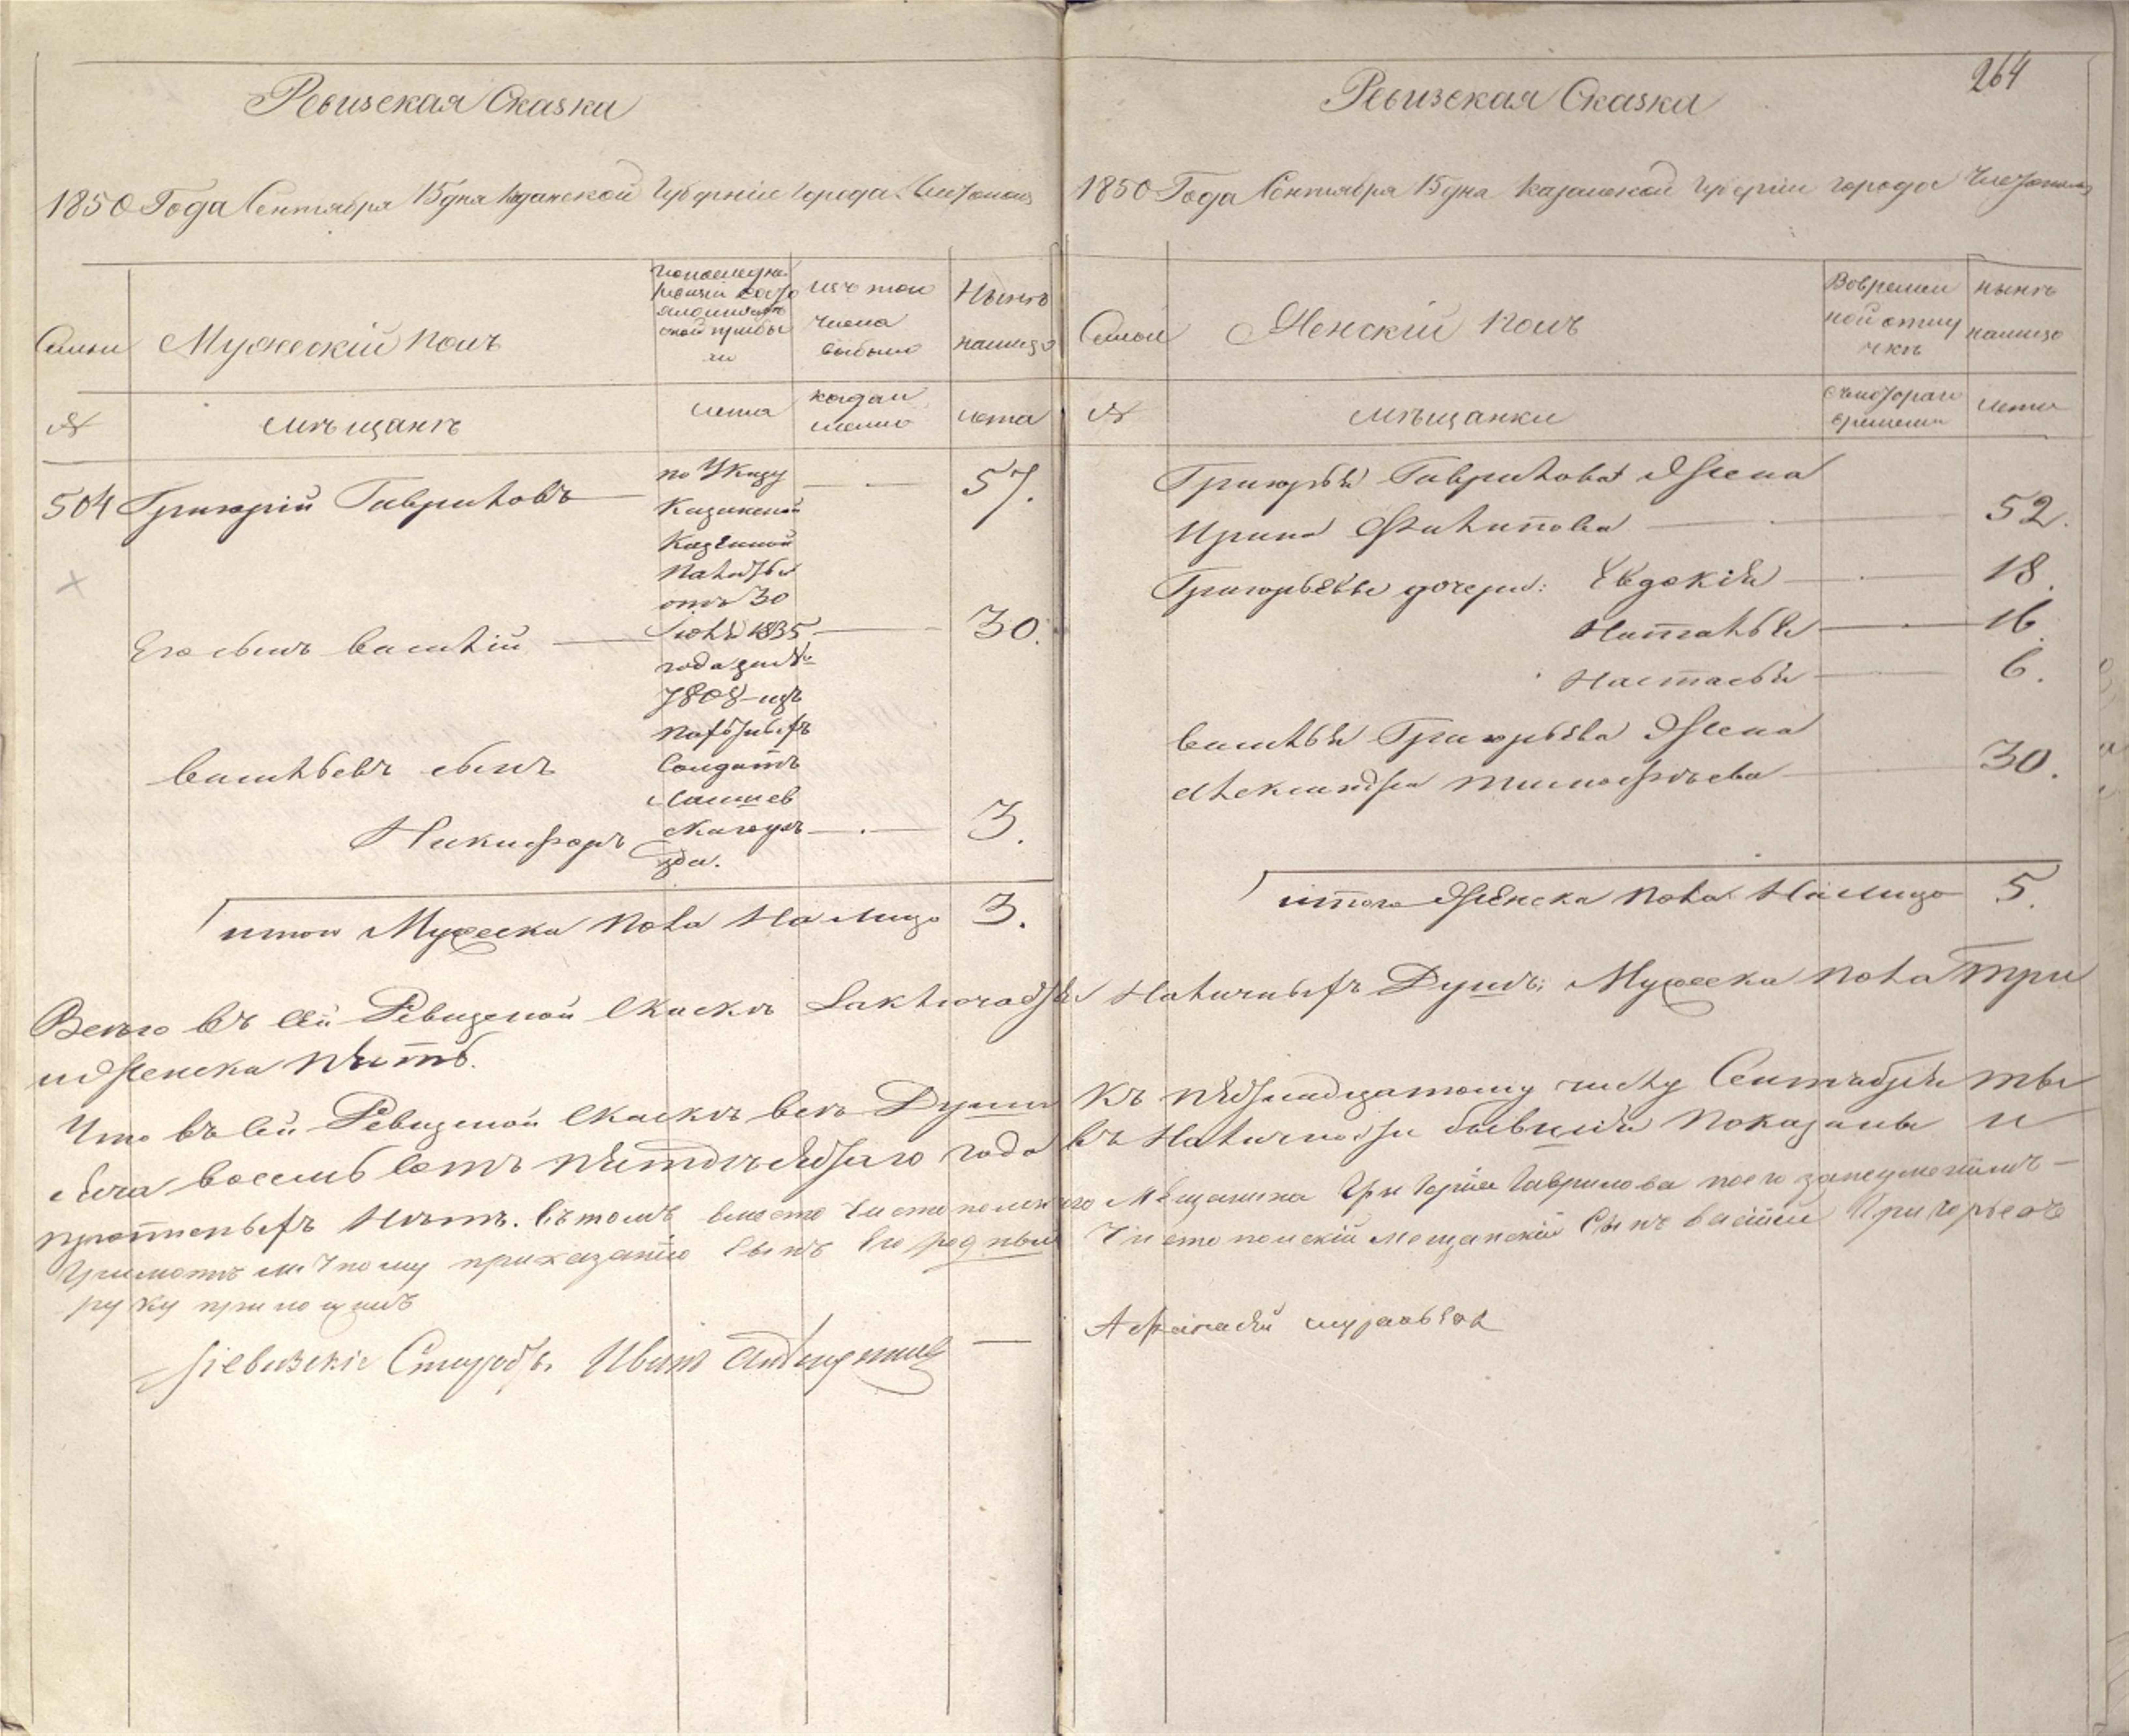 Ревизская Сказка
1850 Года Сентября 15 дня Казанской Губерніи города Чистополя
Семьи
Мужескій полъ
По последней
ревизіи состо
яло и после
оной прибы
ло
Изъ того
числа
выбыло
Нынѣ
налицо
№
мѣщанъ
лета
когда и
менно
лета
504 Григорій Гавриловъ
по Указу
Казанской
Казенной
Палаты
отъ 30
Іюля 1835
года за №
7808 изъ
солдатъ
Лаишев
скаго уѣ
зда.
57.
Его сынъ Василій
30.
Васильевъ сынъ
Никифоръ
3.
итого Мужеска пола На лицо 3.
264
Ревизская Сказка
1850 Года Сентября 15 дня Казанской Губерніи города Чистополя
Семьи
Женскій полъ
Во времен
ной отлу
чкѣ
нынѣ
налицо
№
мѣщанки
съ котораго
времени
лета
Григорья Гаврилова Жена
Ирина Филипова 52.
Григорьевы дочери: Евдокія 18.
Наталья 16.
Настасья 6.
Василья Григорьева Жена
Александра Тимофѣева 30.
итого Женска пола На лицо 5.
Всего въ сей Ревизской Сказкѣ Заключается Наличныхъ Душъ: Мужеска пола три
и Женска пять.
Что въ сей Ревизской Сказкѣ всѣ Души къ пятнадцатому числу Сентября ты
сяча восемь сотъ пятдесятаго года въ Наличности бывшія показаны и
прописныхъ нѣтъ. Въ томъ вместо Чистопольскаго Мѣщанина Григорія Гаврилова по его неуменію
Грамотѣ и личному приказанію сынъ его родный Чистопольскій мещанскій Сынъ Василій Григорьевъ
руку приложилъ
Ревизскіе Старосты Иванъ
Афанасій Муравьевъ